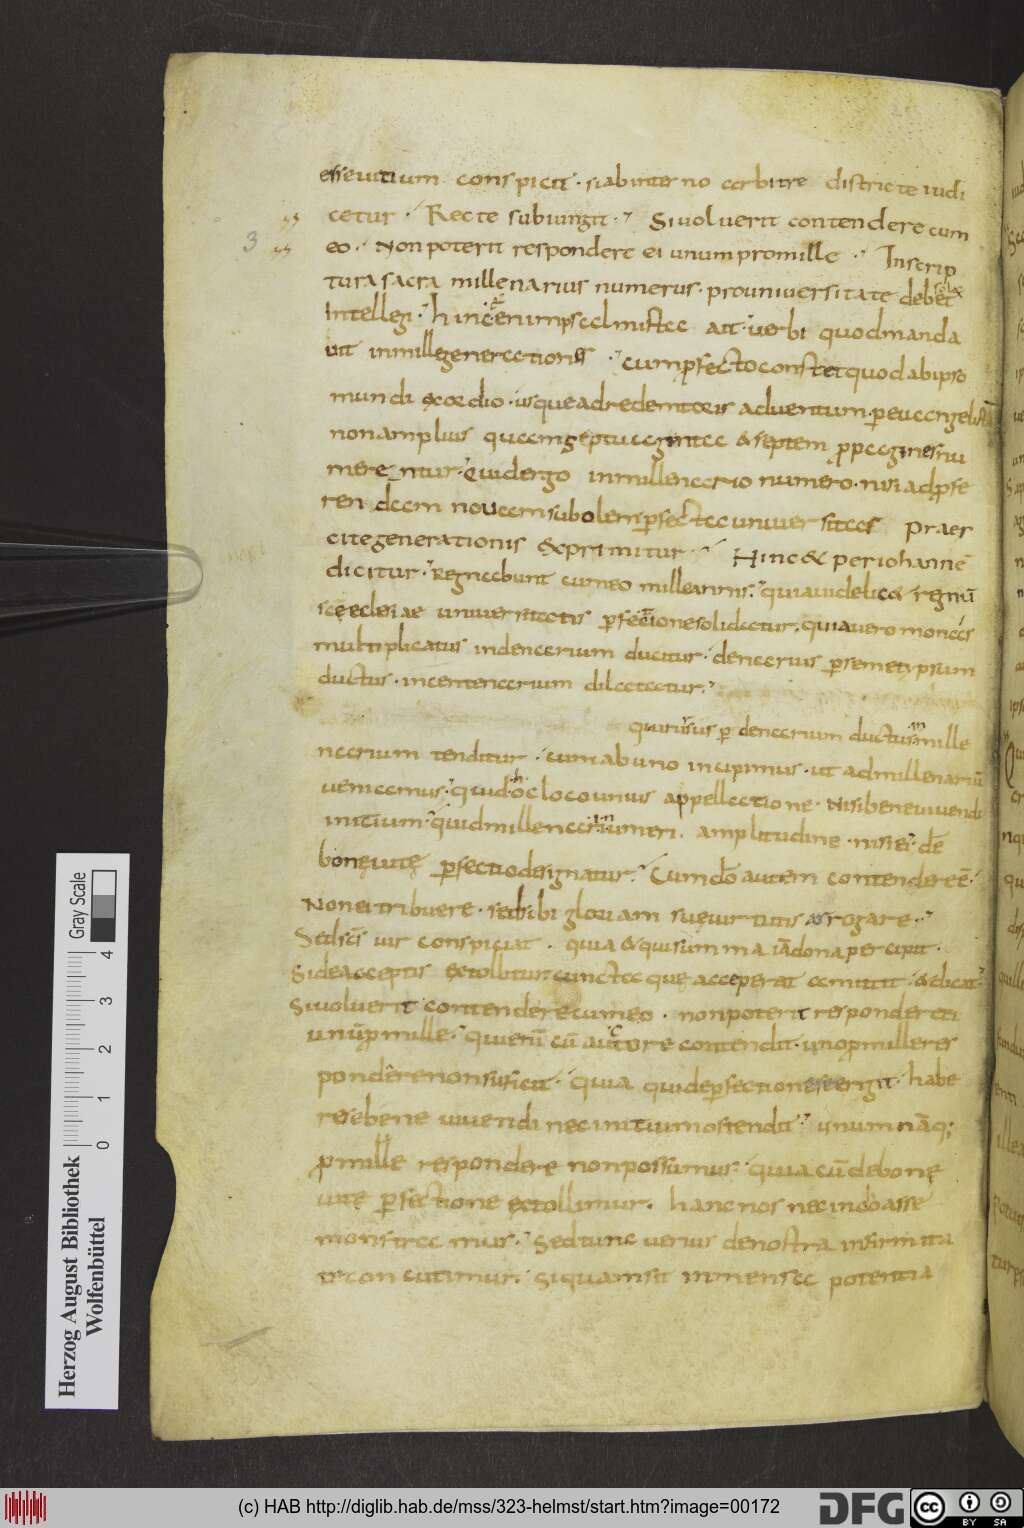 esse uitium conspicit · si ab interno arbitre districte iudi
cetur · Recte subiungit · Si uoluerit contendere cum
3
eo · Non poterit respondere ei unum pro mille · In scrip
tura sacra millenarius numerus · pro uniuersitate debet
Intellegi · hinc enim psalmista ait · uerbi quod manda
uit in mille generationes · cum pfecto constet quod ab ipso
mundi exordio · usque ad redemtoris aduentum · p euangelistā
non amplius quam septuaginta & septem ppagines nu
merentur · Quid ergo in millenario numero · nisi ad pfe
rendam nouam subolem pfecta uniuersitas Praes
cite generationis exprimitur · Hinc & per iohannē
dicitur · Regnabunt cum eo mille annis · quia uidelic& regnū
scę eclesiae uniuersitatis pfectione solidatur · quia uero monas
multiplicatus in denarium ducitur · denarius p semetipsum
ductus · in centenarium dilatatur ·
Qui rursus p denarium ductus in mille
narium tenditur · cum ab uno incipimus · ut ad millenariū
ueniamus · quid hoc loco unius appellatione · Nisi bene uiuendi
initium · quid millenarii numeri · amplitudine · nisi ei · de
bonę uitę pfectio designatur · Cum dō autem contendere ē ·
Non ei tribuere · sed sibi gloriam suę uirtutis arrogare ·
Sed scs uir conspiciat · quia & qui summa iā dona percipit ·
Si de acceptis extollitur cuncta que acceperat amittit · & dicat ·
Si uoluerit contendere cum eo · non poterit respondere ei
unū p mille · qui enī cū auctore contendit · uno p mille res
pondere non suficit · quia qui de pfectione se ergit · habe
re se bene uiuendi nec initium ostendit · unum nāq;
p mille respondere non possumus · quia cū de bonę
uitę pfectione extollimur · hanc nos nec incoasse
monstramus · Sed tunc uerius de nostra infirmita
te concutimur · Si quam sit inmensa potentia
Herzog August Bibliothek
Wolfenbüttel
0 1 2 3 4
Gray Scale
(c) HAB http://diglib.hab.de/mss/323-helmst/start.htm?image=00172
DFG
cc BY SA